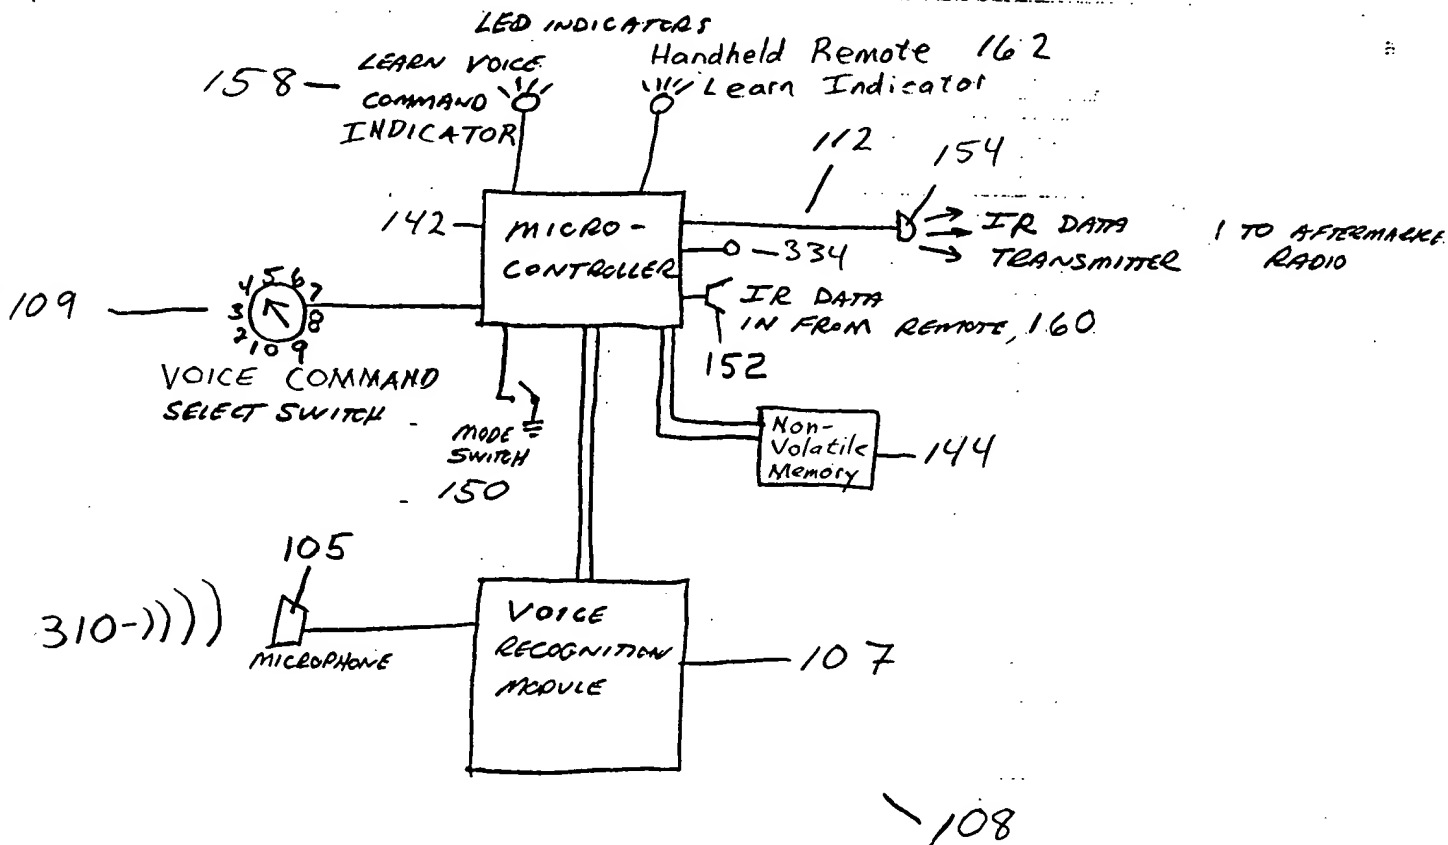 LED INDICATORS
158 LEARN VOICE
COMMAND
INDICATOR
Handheld Remote 162
Learn Indicator
112
154
142
MICRO-
CONTROLLER
IR DATA
TRANSMITTER
1 TO AFTERMARKE
RADIO
334
IR DATA
IN FROM REMOTE, 160
152
109
1 2 3 4 5 6 7 8 9 10
VOICE COMMAND
SELECT SWITCH
MODE
SWITCH
150
Non-
Volatile
Memory
144
105
310
MICROPHONE
VOICE
RECOGNITION
MODULE
107
108